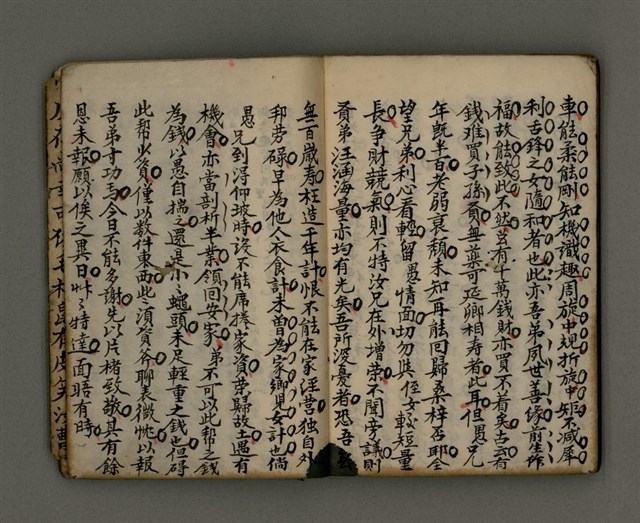 車能柔能剛知機識趣周旋中規折旋中矩不減犀
利古鋒之女隨和者也此亦吾弟夙世善缘前生作
福故能致此不然玄有千萬錢財亦買不着矣古云有
錢难買子孫賢無藥可延卿相寿者此耳但愚兄
年既半百老弱衰頹未知再能回歸桑梓否耶全
望兄弟利心看輕留愚情面切勿與侄女較短量
長争財競氣則不特汝兄在外增荣不聞旁議則
吾弟汪涵海量亦均有光矣吾所深憂者恐吾
無百歲寿枉造千年計恨不能在家汪营独自外
邦劳碌早為他人衣食計未曽為家鄉児女計也倘
愚兄到浮仰坡時設不能席捲家資荣歸故土遇有
機會亦當剖析半業領回安家弟不可以此幇之錢
為錢以愚自揣之還是小〻蠅頭未足輕重之錢也但碍
此幇少資僅以数件東西此之須資爷聊表微忱以報
吾弟寸功焉今日不能多謝先以片楮致敬其有餘
恩未報願以俟之異日艸〻特達面晤有時